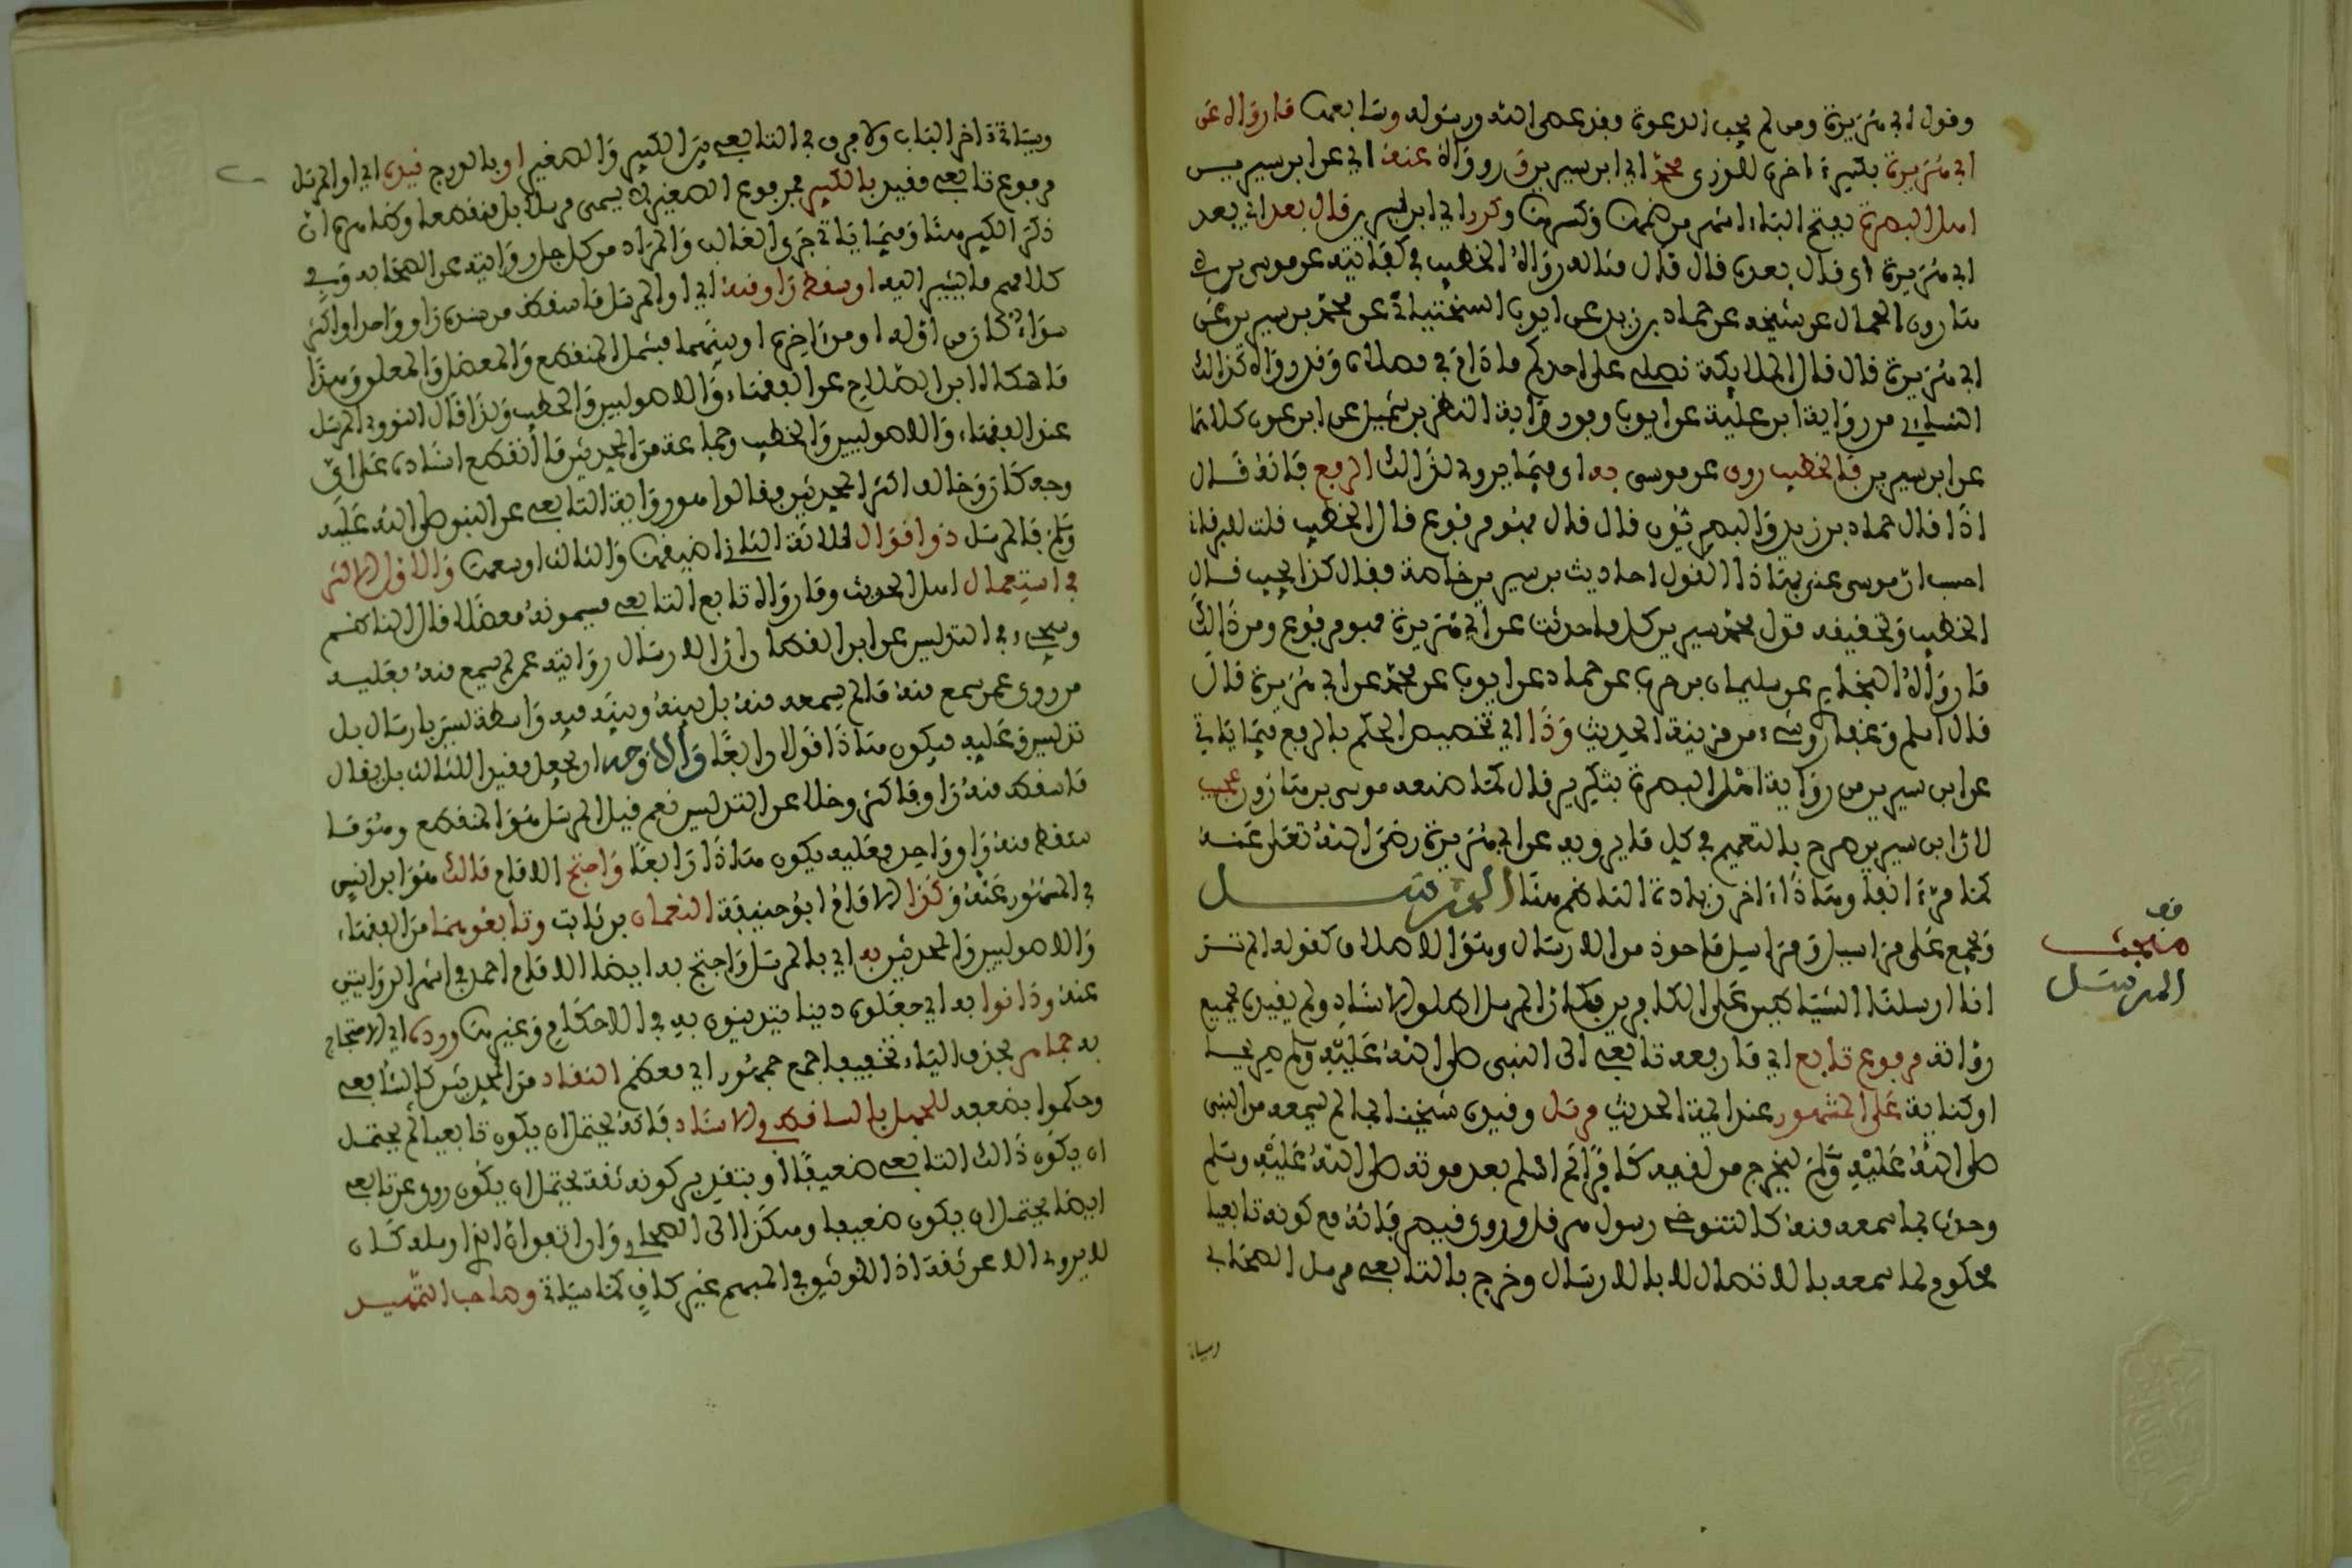 وقول ابي هريرة ومن لم يجب الدعوة فقد عصى الله ورسوله وسابعها ما رواه عن
ابي هريرة بكسرة اخره للوزن محمد اي ابن سيرين و رواه عنه اي عن ابن سيرين
اهل البصرة بفتح الباء اشهر من ضمها وكسرها وكرر اي ابن سيرين قال بعد اي بعد
ابي هريرة اي قال بعده قال قال مثاله رواه الخطيب في كفايته عن موسى بن
هارون الحمال عن شيخه عن حماد بن زيد عن ايوب السختياني عن محمد بن سيرين عن
ابي هريرة قال قال الملايكة تصلي على احدكم ما دام في مصلاه وقد رواه كذالك
النسائي من رواية ابن علية عن ايوب ومن رواية النضر بن شميل عن ابن عون كلاهما
عن ابن سيرين فالخطيب روى عن موسى به اي فيما يروى لذالك الرفع فانه قال
اذا قال حماد بن زيد والبصريون قال قال فهو مرفوع قال الخطيب قلت للبرقاني
احسب ان موسى عنى بهاذا القول احاديث بن سيرين خاصة فقال كذا يجب قال
الخطيب وتحقيقه قول محمد بن سيرين كل ما حدثت عن ابي هريرة فهو مرفوع ومن ذالك
ما رواه البخاري عن سليمان بن حرب عن حماد عن ايوب عن محمد عن ابي هريرة قال
قال اسلم وغفار وشيء من مزينة الحديث وذا اي تخصيص الحكم بالرفع فيما ياتي
عن ابن سيرين من رواية اهل البصرة بتكرير قال كما صنعه موسى بن هارون عجيب
لان ابن سيرين صرح بالتعميم في كل ما يرويه عن ابي هريرة رضي الله تعلى عنه
كما مر انفا وهاذا اخر زيادة الناظم هنا المرسل
ويجمع على مراسيل ومراسل ماخوذ من الارسال وهو الاطلاق كقوله الم تر
انا ارسلنا الشياطين على الكافرين فكان المرسل اطلق الاسناد ولم يقيده بجميع
رواته مرفوع تابع اي ما رفعه تابعي الى النبي صلى الله عليه وسلم صريحا
او كناية على المشهور عند ايمة الحديث مرسل وقيده شيخنا بما لم يسمعه من النبي
صلى الله عليه وسلم ليخرج من لقيه كافرا ثم اسلم بعد موته صلى الله عليه وسلم
وحدث بما سمعه منه كالتنوخي رسول هرقل وروي قيصر فانه مع كونه تابعيا
محكوم لما سمعه بالاتصال لا بالارسال وخرج بالتابعي مرسل الصحابي
وسياتي
قف
مبحث
المرسل
وسياتي اخر الباب ولا فرق في التابعي بين الكبير والصغير
مرفوع تابعي وقيد بالكبير فمرفوع الصغير لا يسمى مرسلا بل منقطعا
ذكر الكبير هنا وفيما ياتي جرى الغالب والمراد من كل جل روايته عن الصحابه وفي
كلامهم ما يشير اليه او سقط راو منه اي او المرسل ما سقط من سنده راو واحد او اكثر
سواء كان من اوله او من اخره او بينهما فيشمل المنقطع والمعضل والمعلق وهذا
ما حكاه ابن الصلاح عن الفقهاء والاصوليين والخطيب وكذا قال النووي المرسل
عند الفقهاء والاصوليين والخطيب وجماعة من المحدثين ما انقطع اسناده على اي
وجه كان وخالفه اكثر المحدثين فقالوا هو رواية التابعي عن النبي صلى الله عليه
وسلم فالمرسل ذو اقوال ثلاثة الثاني اضيقها والثالث اوسعها والاول الاكثر
في استعمال اهل الحديث وما رواه تابع التابعي فيسمونه معضلا قال الناظم
وسيجيء في التدليس عن ابن القطان ان الارسال روايته عمن لم يسمع منه فعليه
من روى عمن سمع منه ما لم يسمعه منه بل بينه وبينه فيه واسطة ليس بارسال بل
تدليس وعليه فيكون هاذا قولا رابعا والاوجه ان يجعل مقيدا للثالث بان يقال
ما سقط منه راو فاكثر وخلا عن التدليس نعم قيل المرسل هو المنقطع وهو ما
سقط منه راو واحد فعليه يكون هاذا رابعا واحتج الامام مالك هو ابن انس
في المشهور عنه وكذا الامام ابو حنيفة النعمان بن ثابت وتابعوهما من الفقهاء
والاصوليين والمحدثين به اي بالمرسل واحتج به ايضا الامام احمد في اشهر الروايتين
عنه ودانوا به اي جعلوه دينا يتدينون به في الاحكام وغيرها ورده اي الاحتجاج
به جماهر بحذف الياء تخفيفا جمع جمهور اي معظم النقاد من المحدثين كالشافعي
وحكموا بضعفه للجهل بالساقط في الاسناد فانه يحتمل ان يكون تابعيا ثم يحتمل
ان يكون ذالك التابعي ضعيفا وبتقدير كونه ثقة يحتمل ان يكون روى عن تابعي
ايضا يحتمل ان يكون ضعيفا وهكذا الى الصحابي وان اتفق ان الذي ارسله كان
لا يروي الا عن ثقة اذ التوثيق في المبهم غير كاف كما سياتي وصاحب التمهيد